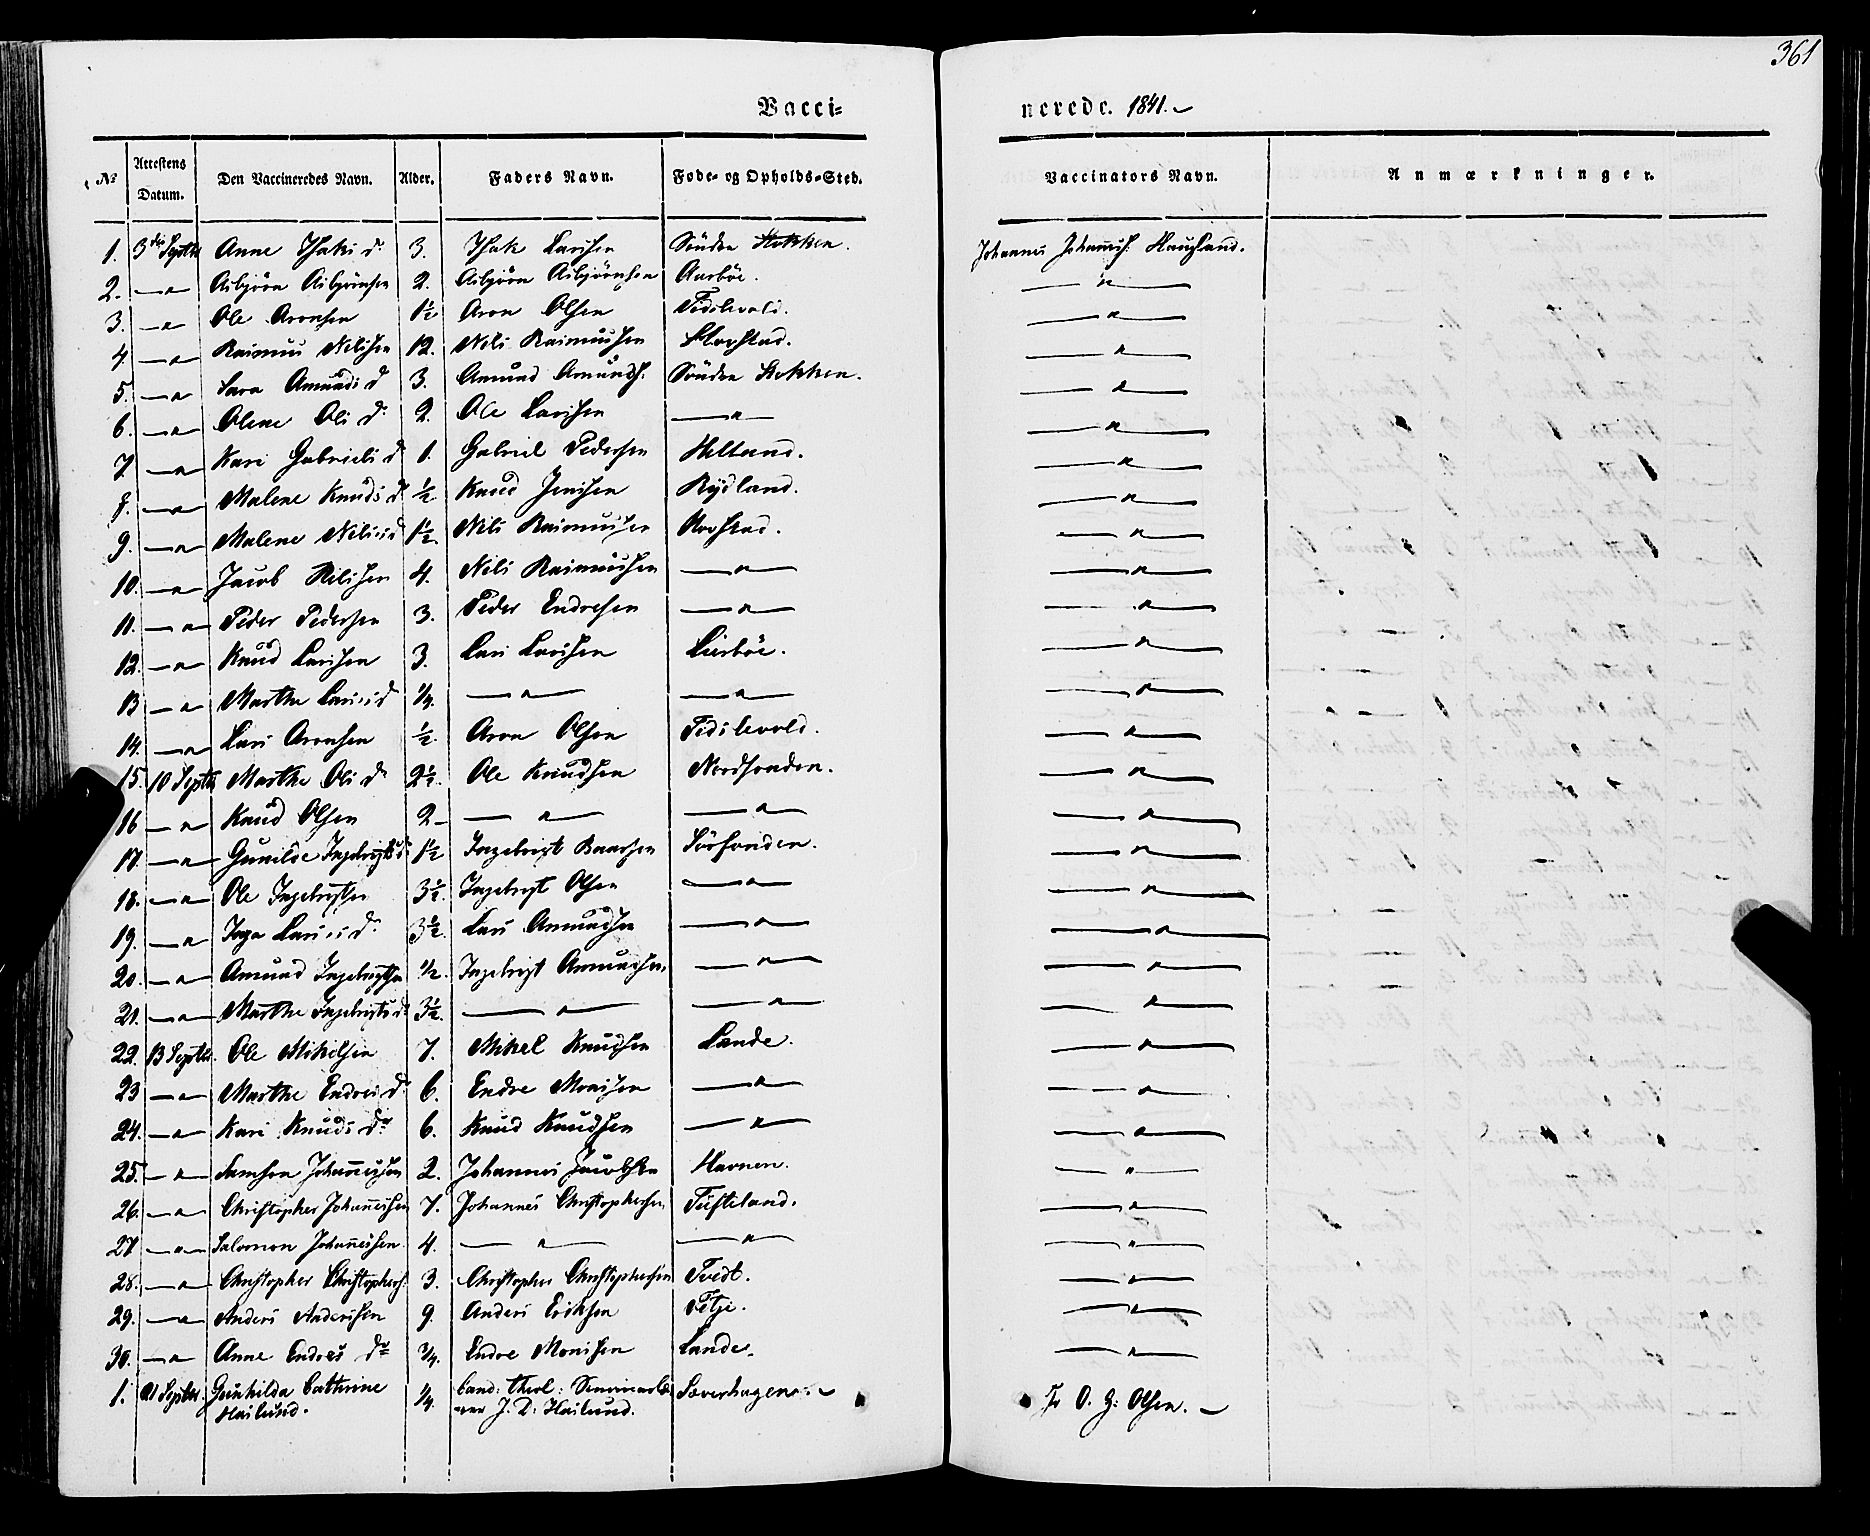 361
Vacci-
nerede. 1841.
No Attestens Datum. Den Vaccineredes Navn. Alder. Faders Navn. Føde- og Opholds-Sted. Vaccinators Navn. Anmærkninger.
1. 3die Septbr Anne Isaks d. 3. Isak Larssen Søndre Hokken. Johannes Johanness. Haugland.
2. — " Asbjørn Asbjørnsen 2. Asbjørn Asbjørnsen Aarbøe. — " —
3. — " Ole Aronsen 1½ Aron Olsen Tidslevold. — " —
4. — " Rasmus Nilssen 12. Nils Rasmussen Rogstad. — " —
5. — " Sara Amunds d 3. Amund Amunds. Søndre Hokken. — " —
6. — " Olene Ols d. 2. Ole Larssen — " — — " —
7. — " Kari Gabriels d 1. Gabriel Pedersen Helland. — " —
8. — " Malene Knuds d. ½ Knud Jenssen Rydland. — " —
9. — " Malene Nilss d 1½ Nils Rasmussen Rogstad. — " —
10. — " Jacob Nilssen 4. Nils Rasmussen — " — — " —
11. — " Peder Pedersen 3. Peder Endresen — " — — " —
12. — " Knud Larssen 3. Lars Larssen Liarbøe. — " —
13 — " Marthe Larss d ¼. — " — — " — — " —
14. — " Lars Aronsen ½. Aron Olsen Tidslevold. — " —
15. 10 Septbr Marthe Ols d. 2½. Ole Knudsen Nordfonden. — " —
16 — " Knud Olsen 2 — — " — — " — — " —
17. — " Gunilde Ingebrigts d. 1½ Ingebrigt Baarsen Sørfonden. — " —
18. — " Ole Ingebrigtsen 3½. Ingebrigt Olsen — " — — " —
19. — " Inga Larss d. 3½. Lars Amundsen — " — — " —
20. — " Amund Ingebrigtsen ½. Ingebrigt Amundsen — " — — " —
21. — " Marthe Ingebrigts d. 3½. — " — — " — — " —
22. 13 Septbr. Ole Mikelsen 7. Mikel Knudsen Lande. — " —
23 — " Marthe Endres d. 6. Endre Monssen — " — — " —
24. — " Kari Knuds Dr 6. Knud Knudsen — " — — " —
25. — " Samson Johannessen 2. Johannes Jacobsen Havnen. — " —
26. — " Christopher Johannessen 7. Johannes Christophersen Tufteland. — " —
27 — " Salomon Johannessen. 4. — " — — " — — " —
28. — " Christopher Christophers. 3. Christopher Christophersen Tvedt. — " —
29. — " Anders Anderssen 9. Anders Eriksen Fitje. — " —
30. — " Anne Endres Dr ¾. Endre Monssen Lande. — " —
1. 21 Septbr. Gunhilda Cathrine ¼. Cand: theol: Seminarlæ- Severhagen. Fr O. G: Olsen.
Haslund. rer J. D: Haslund.